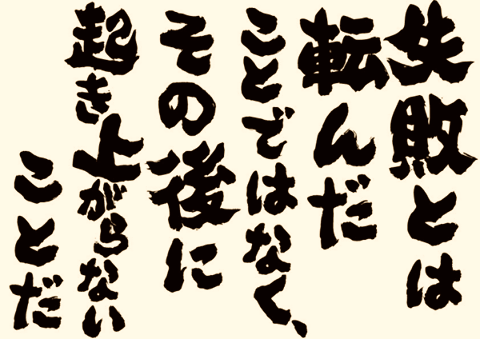 失敗とは
転んだ
ことではなく、
その後に
起き上がらない
ことだ